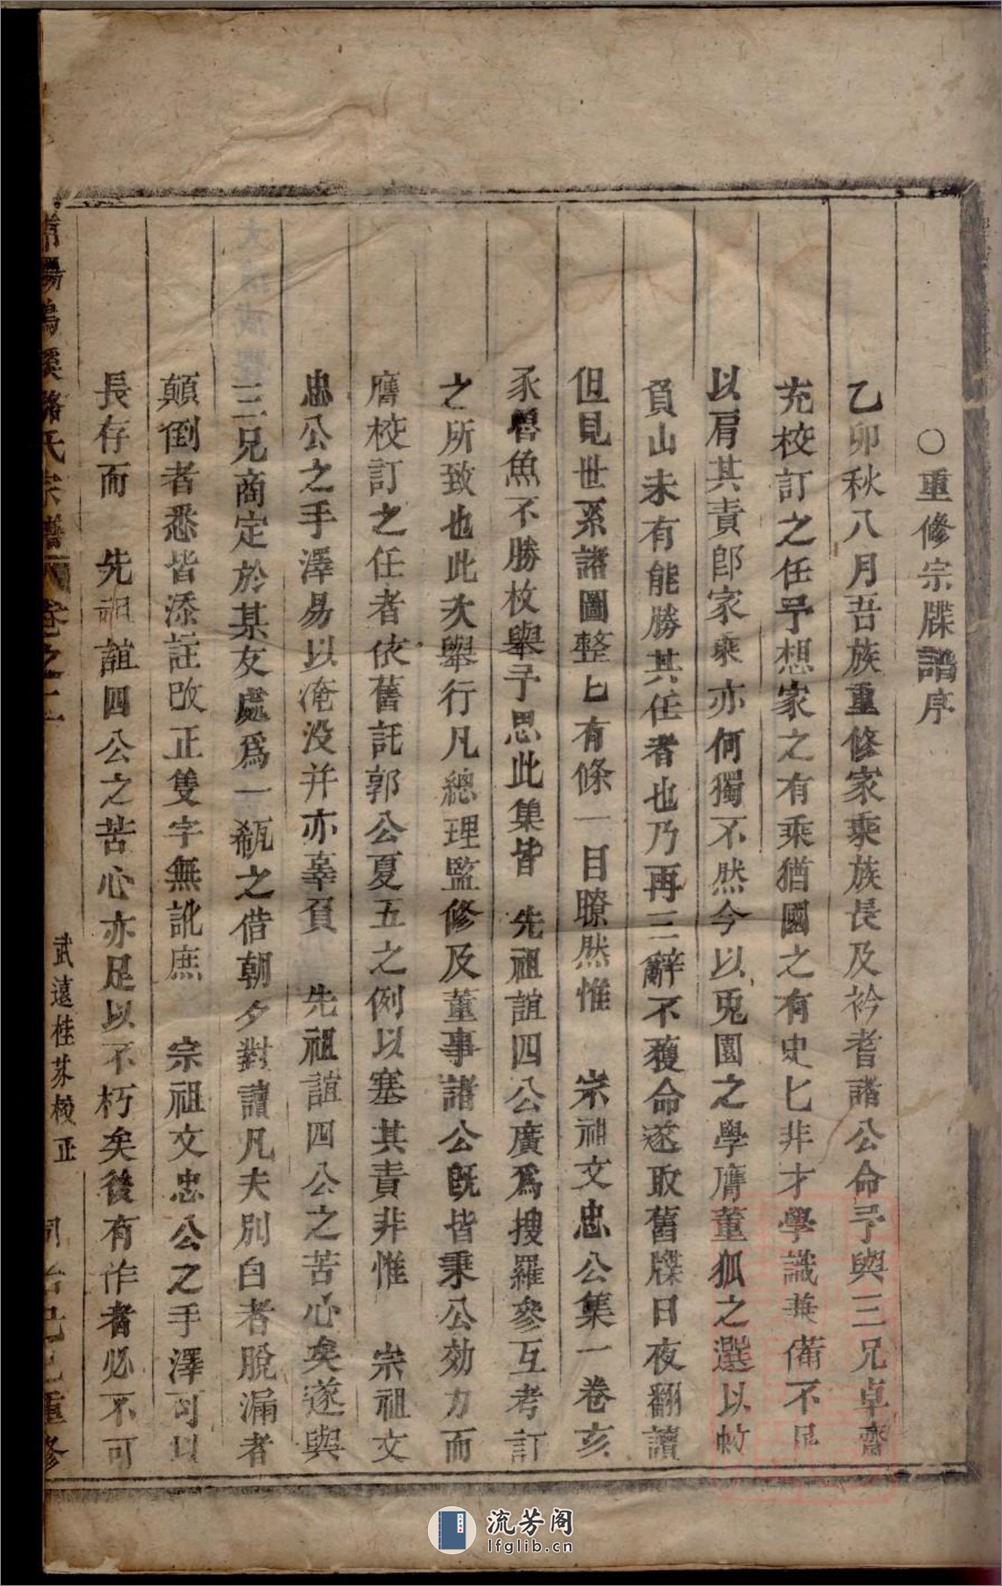 ○重修宗牒譜序
乙卯秋八月吾族重修家乘族長及衿耆諸公命予與三兄卓齋
充校訂之任予想家之有乘猶國之有史匕非才學識兼備不足
以肩其責卽家乘亦何獨不然今以兎園之學膺董狐之選以蚊
負山未有能勝其任者也乃再三辭不獲命遂取舊牒日夜翻讀
但見世系諸圖整匕有條一目瞭然惟 宗祖文忠公集一卷亥
豕魯魚不勝枚舉予思此集皆 先祖誼四公廣爲搜羅參互考訂
之所致也此次舉行凡總理監修及董事諸公旣皆秉公効力而
膺校訂之任者依舊託郭公夏五之例以塞其責非惟 宗祖文
忠公之手澤易以淹没并亦辜負 先祖誼四公之苦心矣遂與
三兄商定於某友處爲一瓻之借朝夕對讀凡夫別白者脫漏者
顛倒者悉皆添註改正隻字無訛庶 宗祖文忠公之手澤可以
長存而 先祖誼四公之苦心亦足以不朽矣後有作者必不可
陽 溪 氏宗譜 卷之二 武遠桂芬校正 同治己巳重修
流芳阁
lfglib.cn